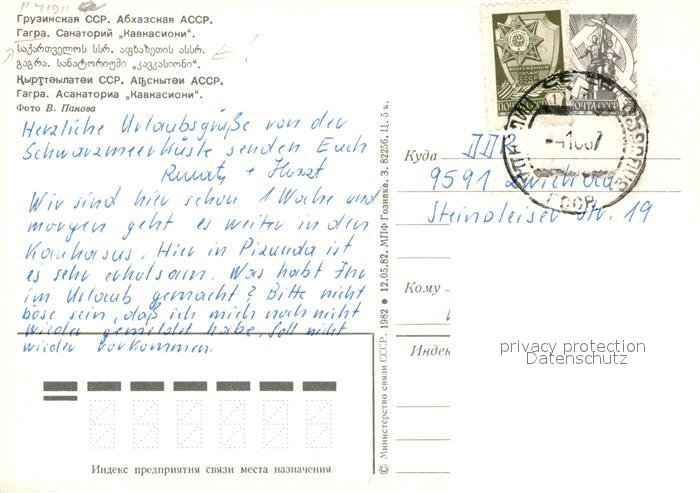 Грузинская ССР. Абхазская АССР.
Гагра. Санаторий „Кавкасиони".
საქართველოს სსრ. აფხაზეთის ასსრ.
გაგრა. სანატორიუმი „კავკასიონი".
Қырҭтәылатәи ССР. Аԥснытәи АССР.
Гагра. Асанаториа „Кавкасиони".
Фото В. Панова
Herzliche Urlaubsgrüße von der
Schwarzmeerküste senden Euch
Renate + Horst
Wir sind hier schon 1 Woche und
morgen geht es weiter in den
Kaukasus. Hier in Pizunda ist
es sehr erholsam. Was habt Ihr
im Urlaub gemacht? Bitte nicht
böse sein, daß ich mich noch nicht
wieder gemeldet habe. Soll nicht
wieder vorkommen.
Индекс предприятия связи места назначения
© Министерство связи СССР. 1982 • 12.05.82. МПФ Гознака. З. 82256. Ц. 5 к.
ВООРУЖЕННЫМ
СИЛАМ
СССР
ПОЧТА СССР
ПОЧТА СССР
ГССР
Куда
DDR
9591 Zwickau
Steinpleiser Str. 19
Кому
Индек
privacy protection
Datenschutz